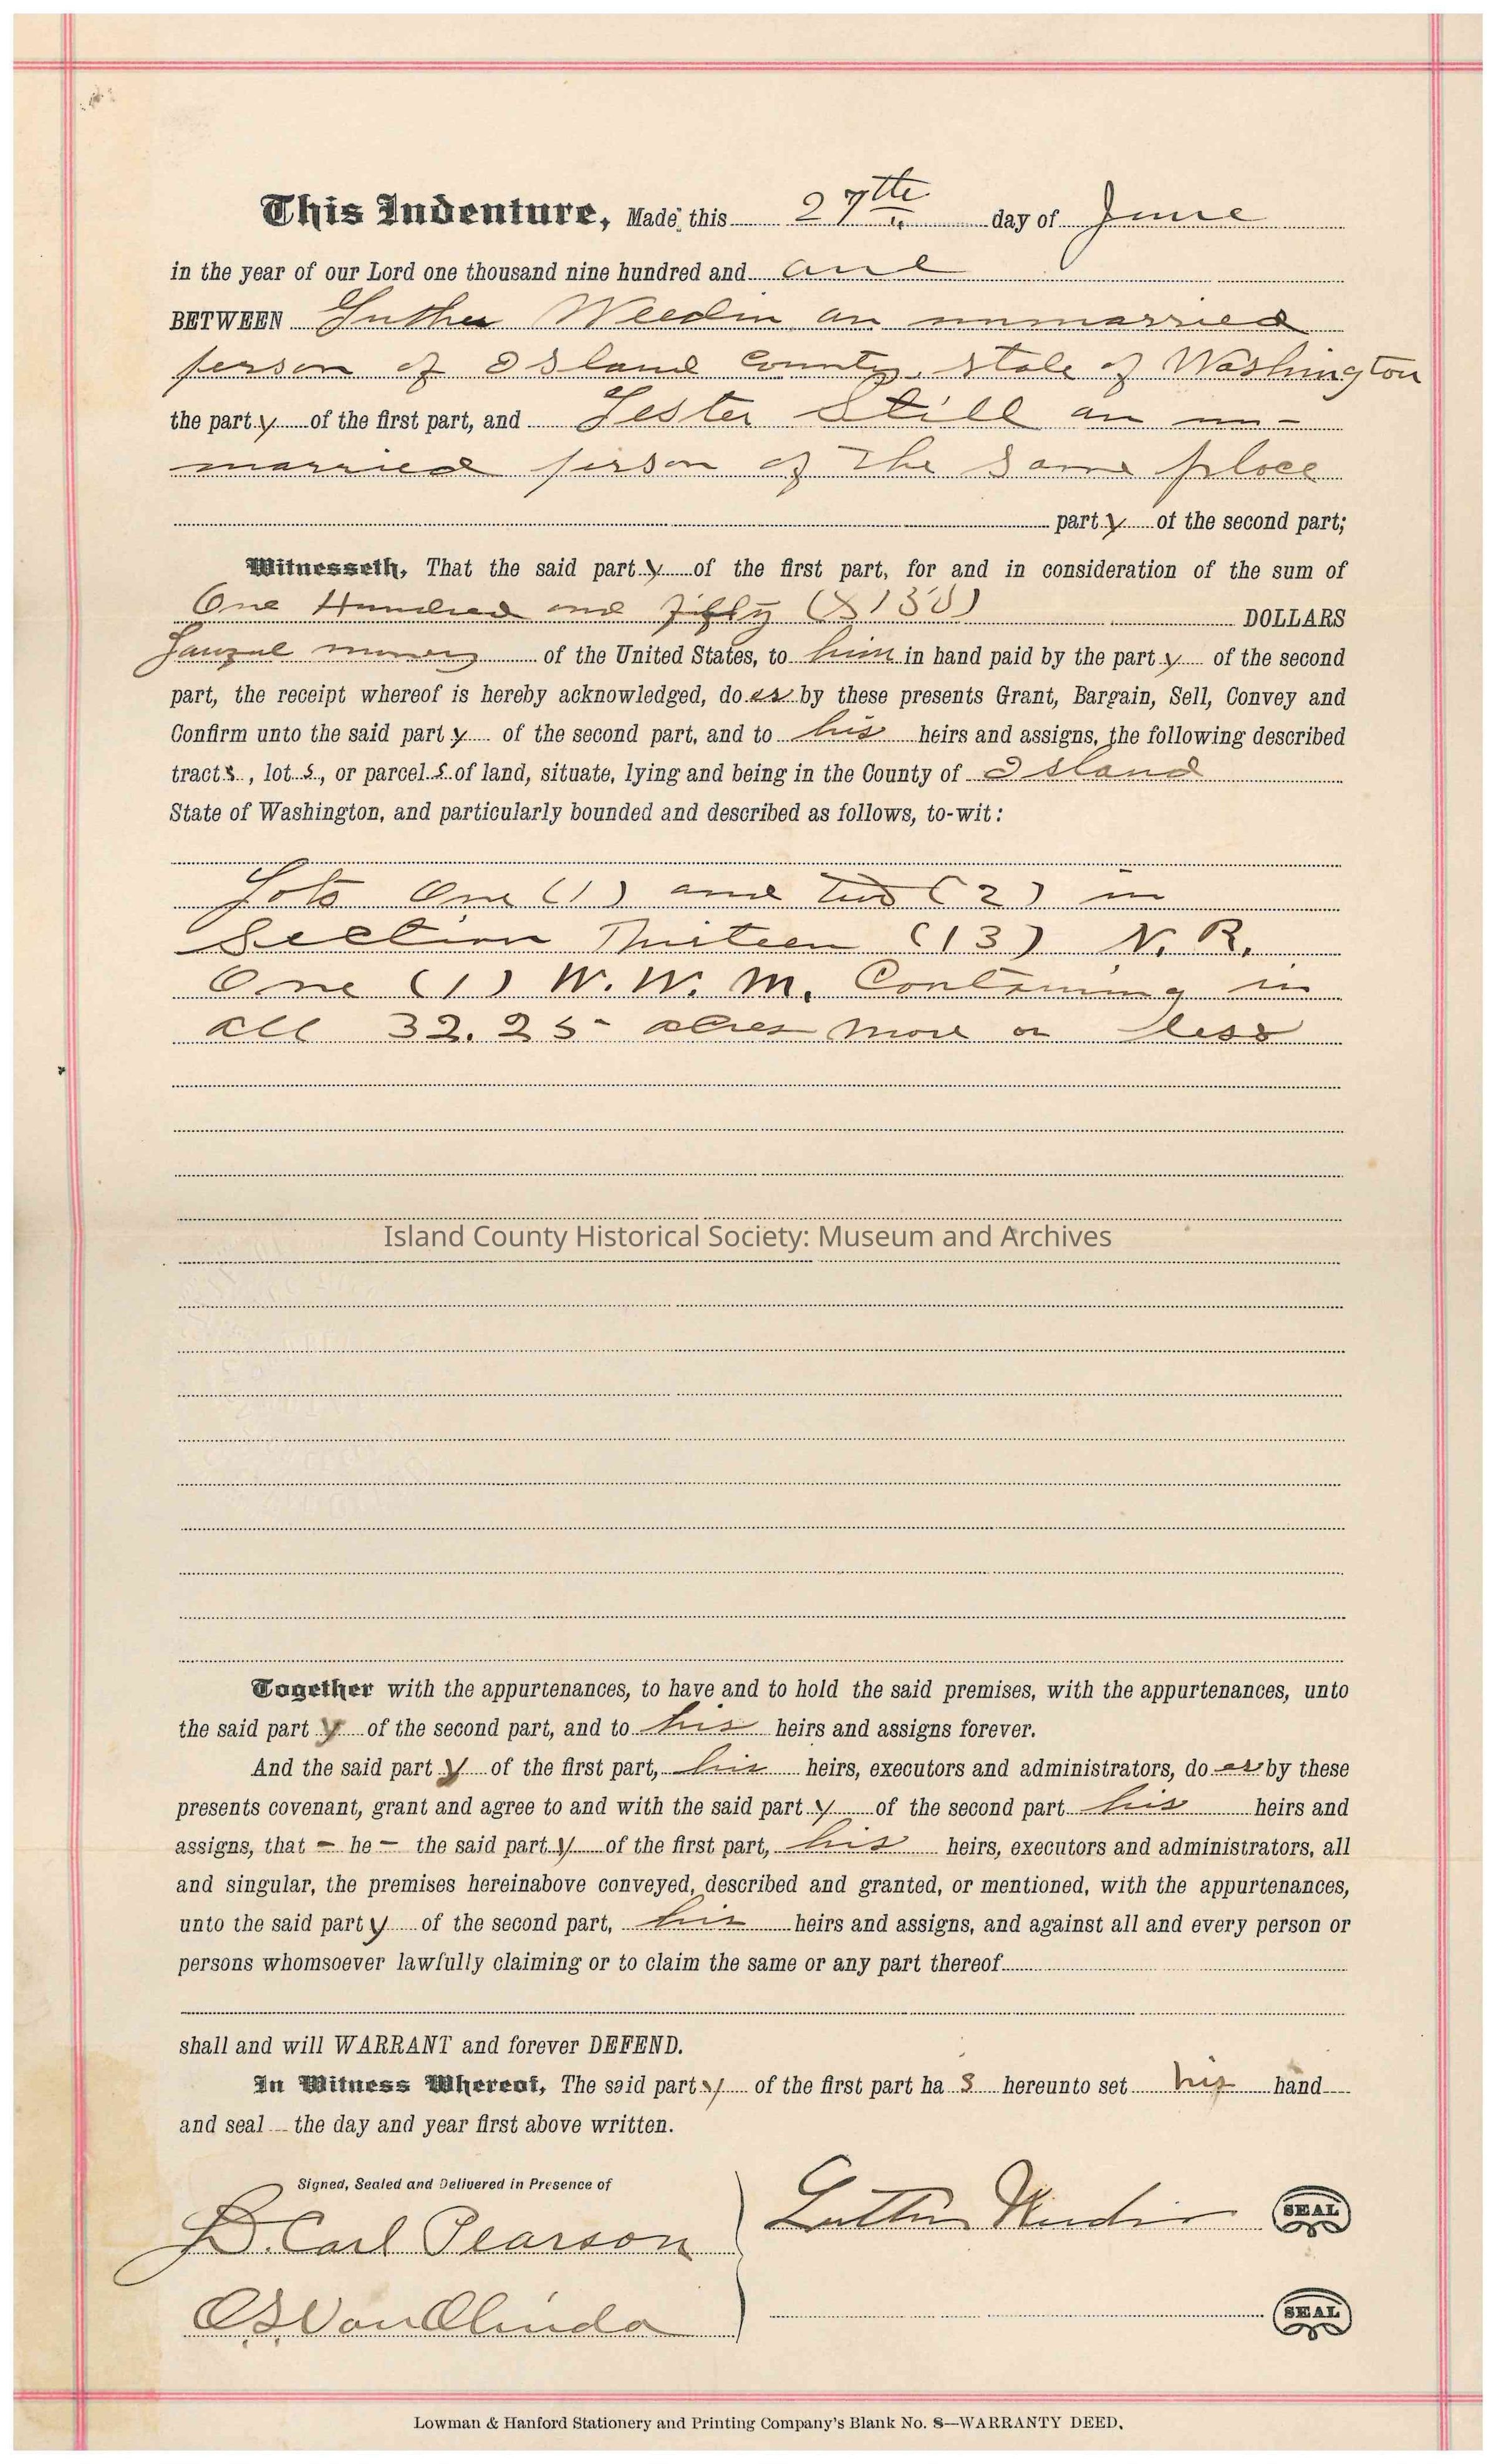 This Indenture, Made this 27th day of June
in the year of our Lord one thousand nine hundred and one
BETWEEN Luther Weedin an unmarried
person of Island County, State of Washington
the party of the first part, and Lester Still an un-
married person of the same place
party of the second part;
Witnesseth, That the said party of the first part, for and in consideration of the sum of
One Hundred and fifty ($150) DOLLARS
Lawful money of the United States, to him in hand paid by the party of the second
part, the receipt whereof is hereby acknowledged, does by these presents Grant, Bargain, Sell, Convey and
Confirm unto the said party of the second part, and to his heirs and assigns, the following described
tracts, lots, or parcels of land, situate, lying and being in the County of Island
State of Washington, and particularly bounded and described as follows, to-wit:
Lots One (1) and Two (2) in
Section Thirteen (13) N. R.
One (1) W. W. M. Containing in
all 32.25 acres more or less
Island County Historical Society: Museum and Archives
Together with the appurtenances, to have and to hold the said premises, with the appurtenances, unto
the said party of the second part, and to his heirs and assigns forever.
And the said party of the first part, his heirs, executors and administrators, does by these
presents covenant, grant and agree to and with the said party of the second part his heirs and
assigns, that - he - the said party of the first part, his heirs, executors and administrators, all
and singular, the premises hereinabove conveyed, described and granted, or mentioned, with the appurtenances,
unto the said party of the second part, his heirs and assigns, and against all and every person or
persons whomsoever lawfully claiming or to claim the same or any part thereof
shall and will WARRANT and forever DEFEND.
In Witness Whereof, The said party of the first part has hereunto set his hand
and seal the day and year first above written.
Signed, Sealed and Delivered in Presence of
Luther Weedin SEAL
D. Carl Pearson
C S Van Olinda SEAL
Lowman & Hanford Stationery and Printing Company's Blank No. 8—WARRANTY DEED.